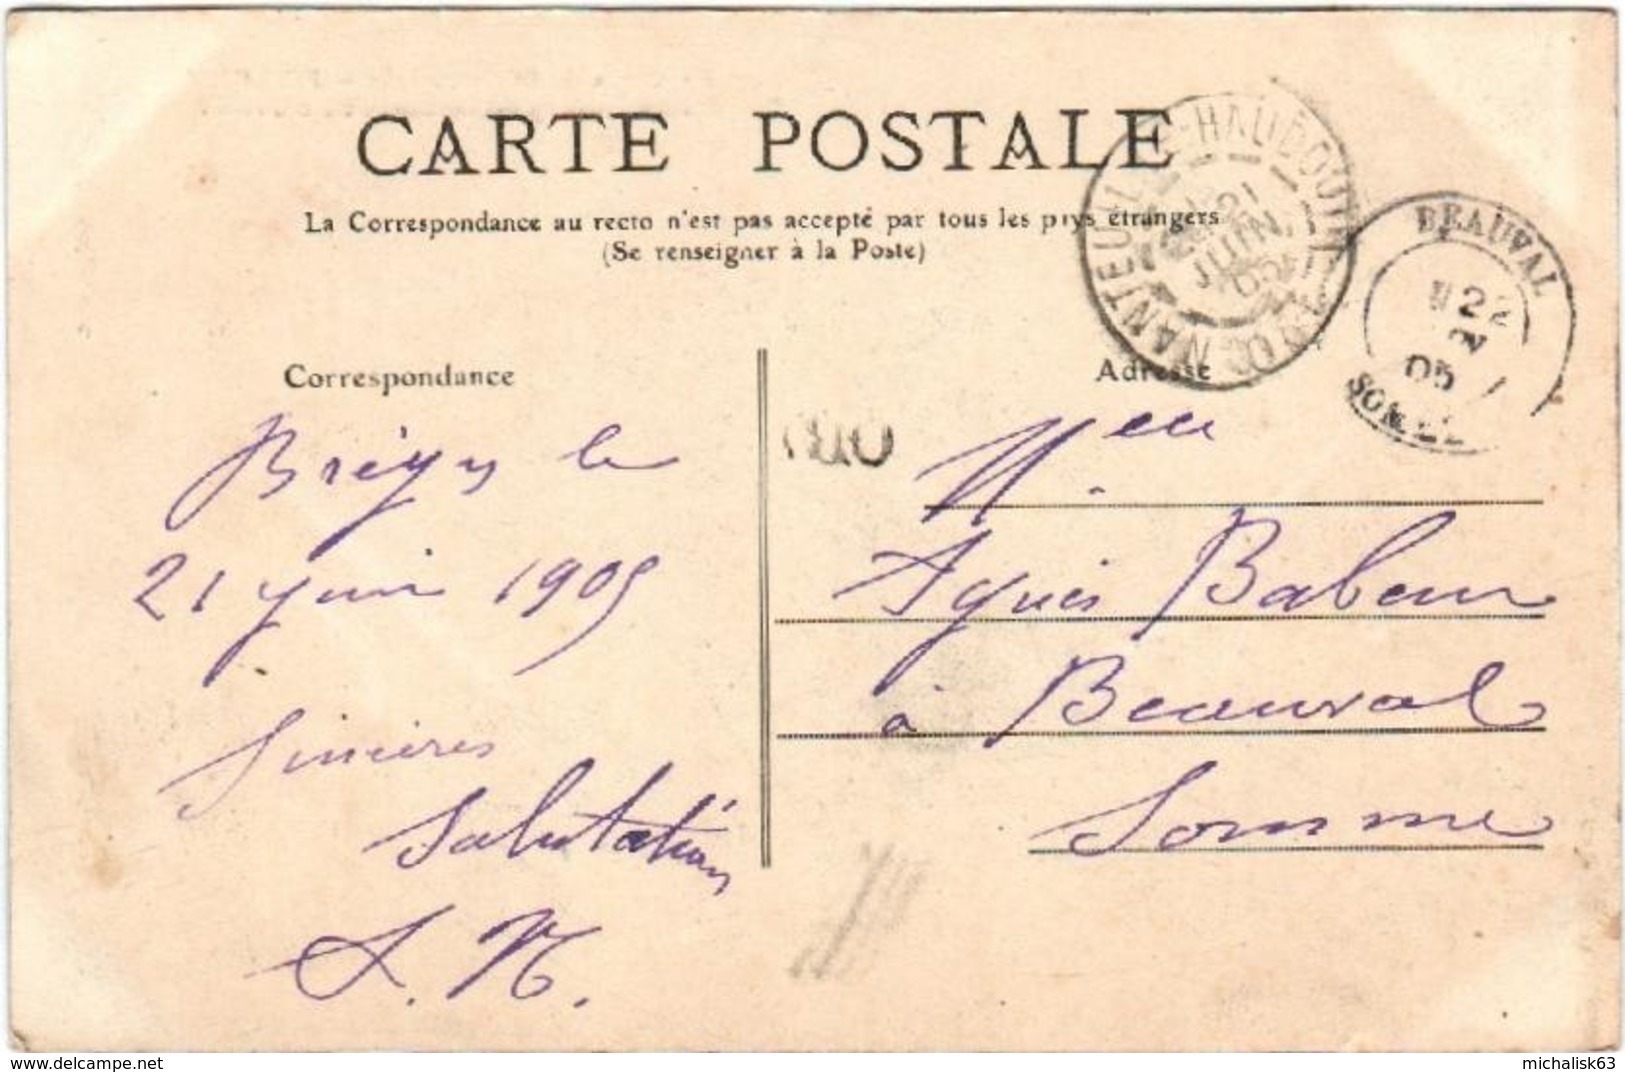 CARTE POSTALE
La Correspondance au recto n'est pas accepté par tous les pays étrangers
(Se renseigner à la Poste)
NANTEUIL-HAUDOUIN
21
JUIN
05
BEAUVAL
22
05
SOMME
Correspondance
Adresse
Brégy le
21 juin 1905
Sincères
Salutations
A. N.
Melle
Agnès Babeur
à Beauval
Somme
delcampe.net
michalisk63